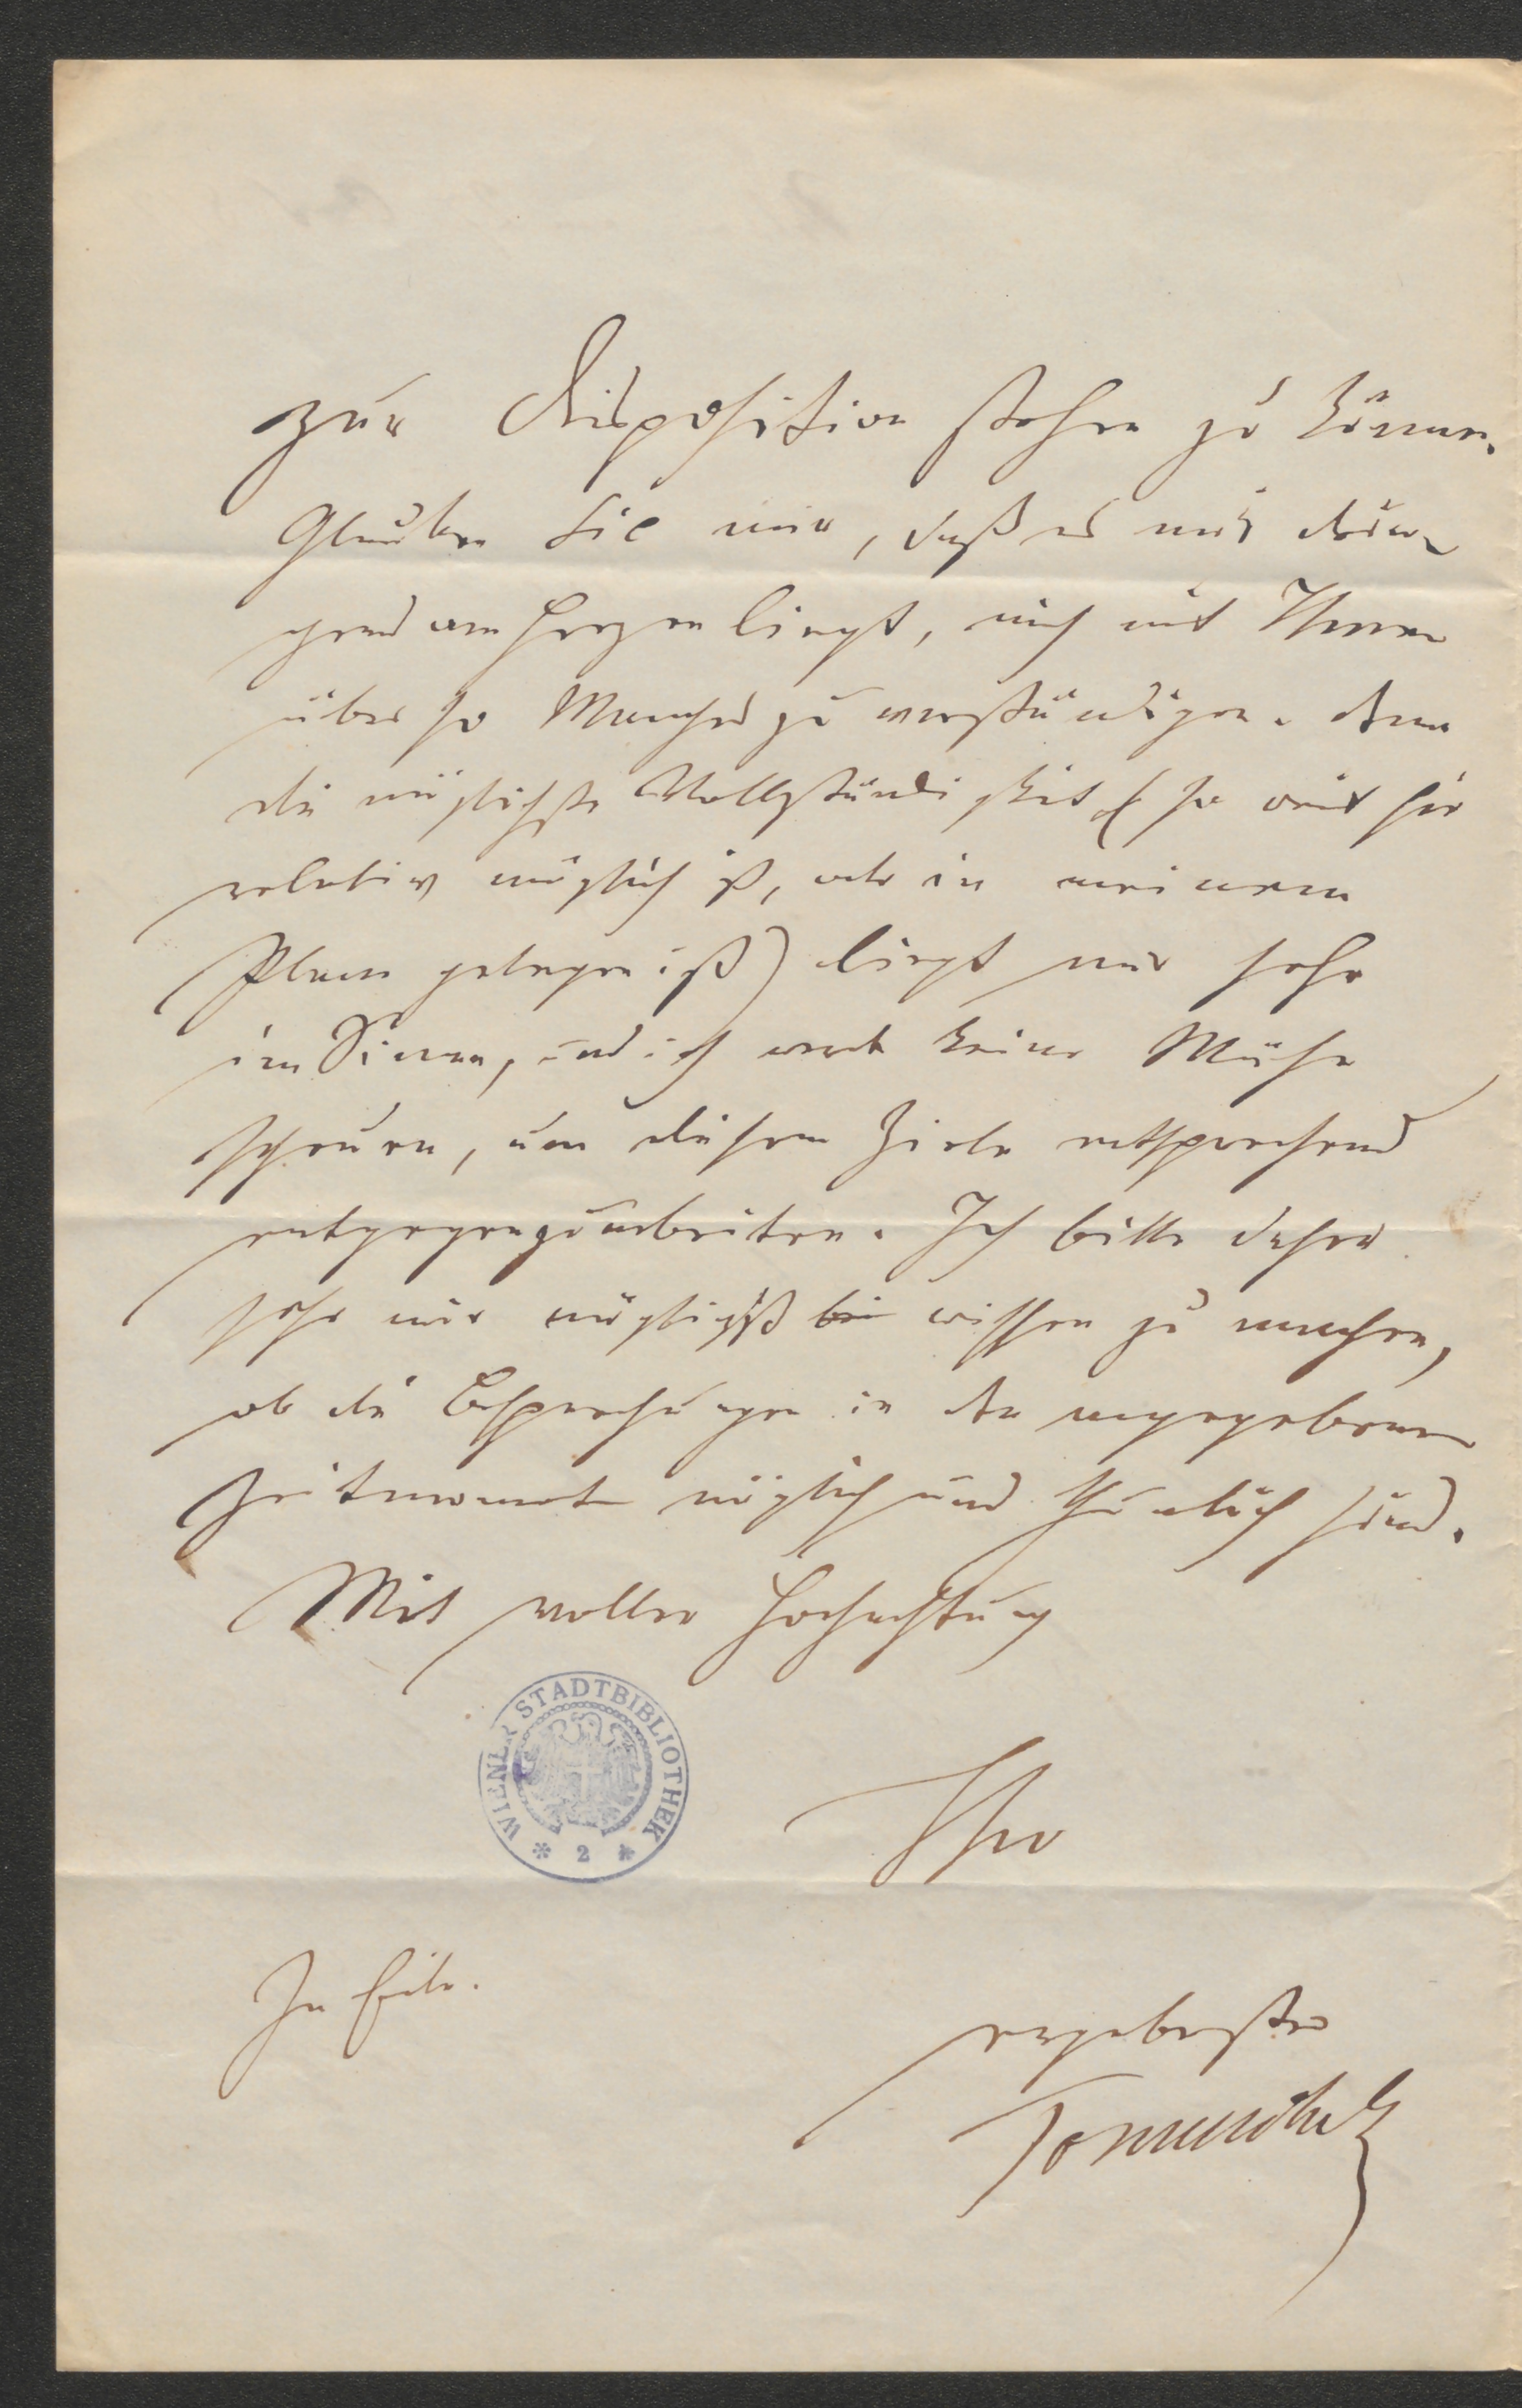 zur Disposition stehen zu können.
Glauben Sie mir, daß es mir drin-
gend am Herzen liegt, mich mit Ihnen
über so Manches zu verständigen. Denn
die möglichste Vollständigkeit (so weit sie
relativ möglich ist, oder in meinem
Plane gelegen ist) liegt mir sehr
im Sinne, und ich werde keine Mühe
scheuen, um diesem Ziele entsprechend
entgegenzuarbeiten. Ich bitte daher
sehr mir möglichst wissen zu machen,
ob die Besprechungen in der angegebenen
Zeitmomente möglich und thunlich sind.
Mit voller Hochachtung
WIENER STADTBIBLIOTHEK
* 2 *
Ihr
In Eile.
ergebenster
Tomaschek